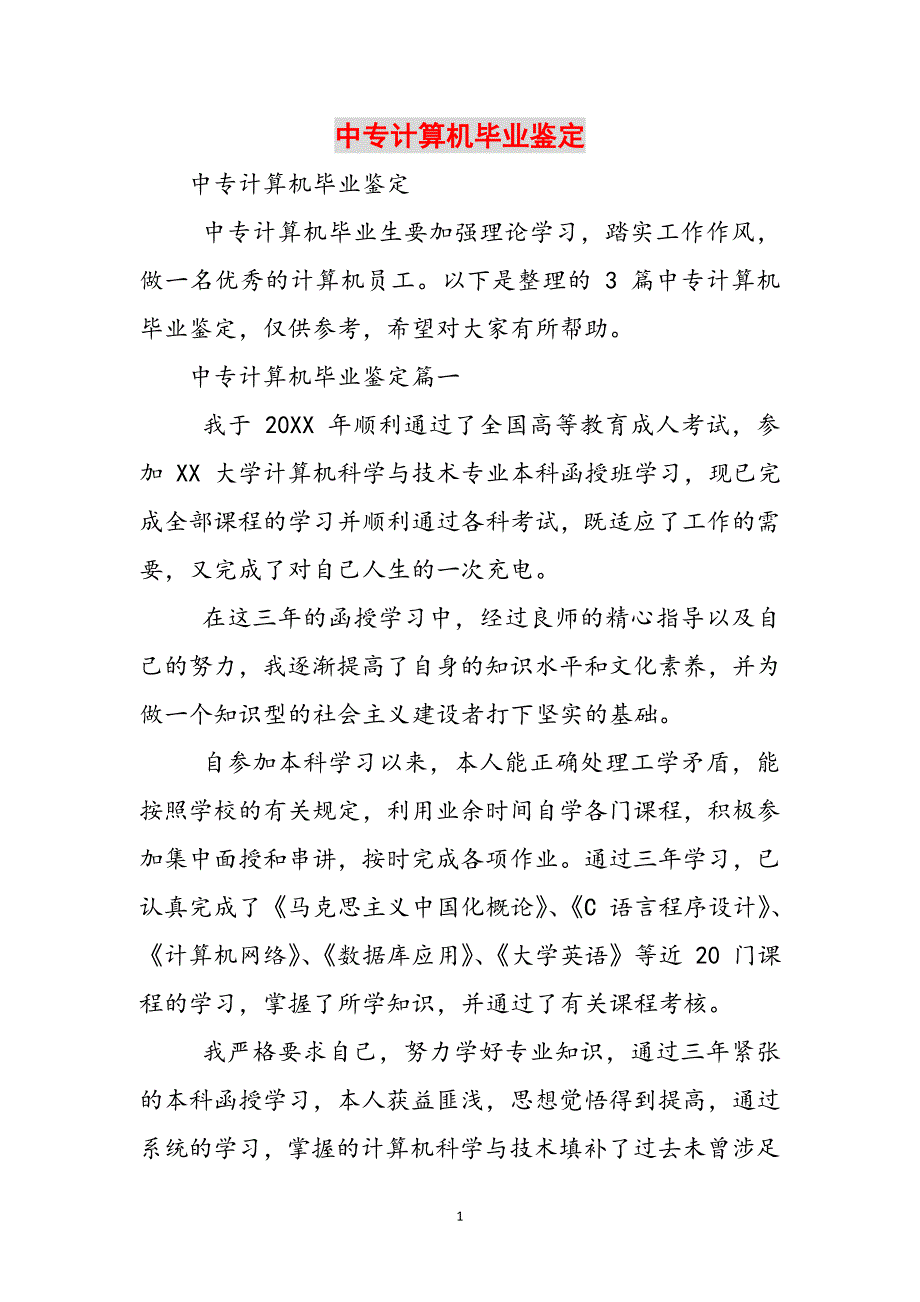 中专计算机毕业鉴定
中专计算机毕业鉴定
中专计算机毕业生要加强理论学习，踏实工作作风，
做一名优秀的计算机员工。以下是整理的 3 篇中专计算机
毕业鉴定，仅供参考，希望对大家有所帮助。
中专计算机毕业鉴定篇一
我于 20XX 年顺利通过了全国高等教育成人考试，参
加 XX 大学计算机科学与技术专业本科函授班学习，现已完
成全部课程的学习并顺利通过各科考试，既适应了工作的需
要，又完成了对自己人生的一次充电。
在这三年的函授学习中，经过良师的精心指导以及自
己的努力，我逐渐提高了自身的知识水平和文化素养，并为
做一个知识型的社会主义建设者打下坚实的基础。
自参加本科学习以来，本人能正确处理工学矛盾，能
按照学校的有关规定，利用业余时间自学各门课程，积极参
加集中面授和串讲，按时完成各项作业。通过三年学习，已
认真完成了《马克思主义中国化概论》、《C 语言程序设计》、
《计算机网络》、《数据库应用》、《大学英语》等近 20 门课
程的学习，掌握了所学知识，并通过了有关课程考核。
我严格要求自己，努力学好专业知识，通过三年紧张
的本科函授学习，本人获益匪浅，思想觉悟得到提高，通过
系统的学习，掌握的计算机科学与技术填补了过去未曾涉足
1